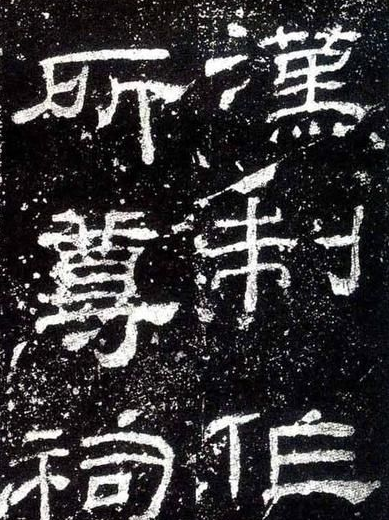 漢制作
所尊祠